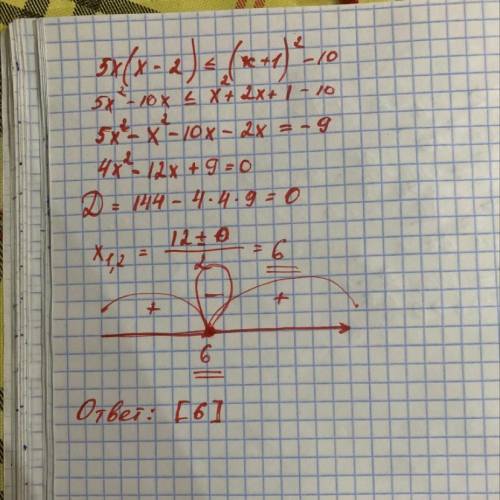 5x(x-2) ≤ (x+1)² -10
5x² -10x ≤ x² + 2x + 1 - 10
5x² - x² - 10x - 2x = -9
4x² - 12x + 9 = 0
D = 144 - 4·4·9 = 0
x₁,₂ = (12 ± 0)/2 = 6
+ - +
6
Ответ: [6]